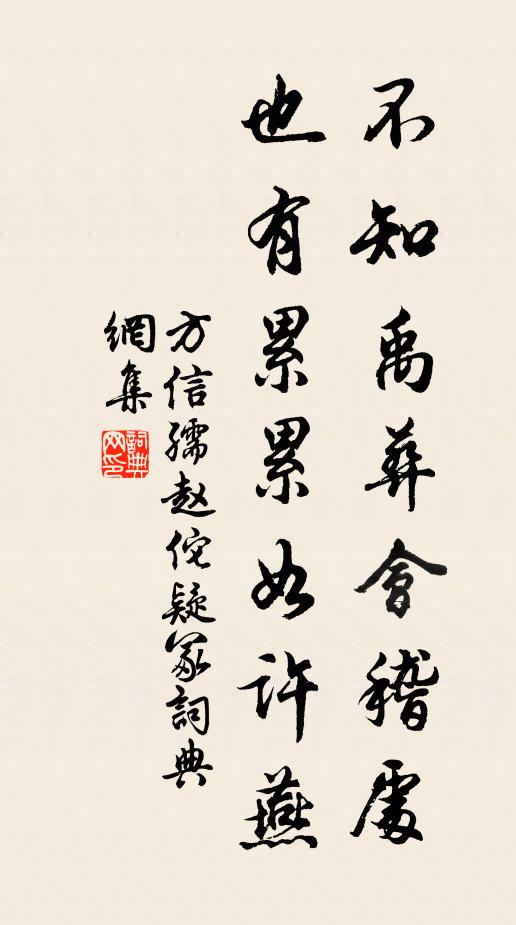 不知禹葬會稽處
也有累累如許無
方信孺赵佗疑冢詞典
網集
詞典
网印